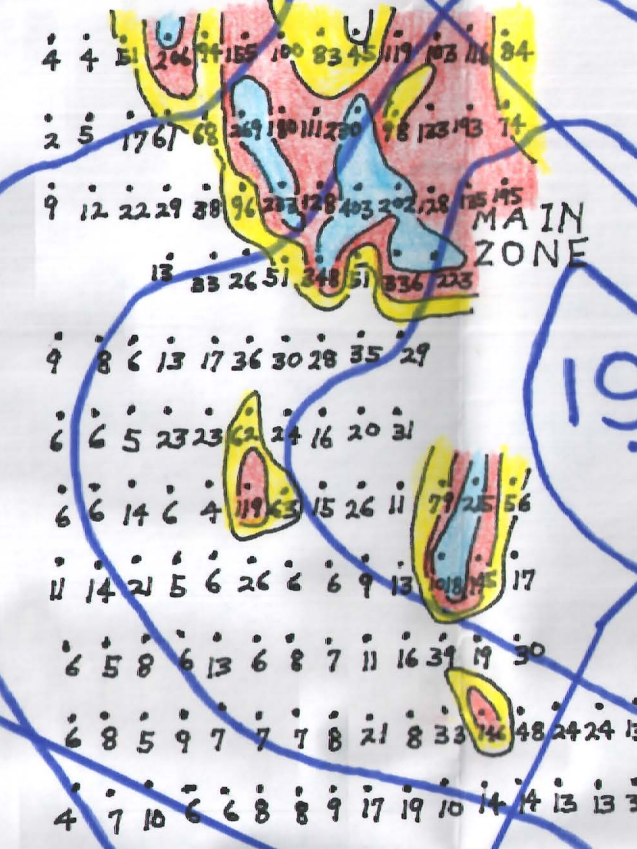 4 4 51 206 94 155 100 83 45 119 103 116 84
2 5 17 61 68 269 180 111 230 98 123 193 74
9 12 22 29 38 96 233 128 403 202 128 135 195
MAIN
ZONE
13 33 26 51 348 51 336 223
9 8 6 13 17 36 30 28 35 29
19
6 6 5 23 23 62 24 16 20 31
6 6 14 6 4 119 63 15 26 11 79 215 56
11 14 21 5 6 26 6 6 9 13 1018 145 17
6 5 8 6 13 6 8 7 11 16 39 19 30
6 8 5 9 7 7 7 8 21 8 33 146 48 24 24
4 7 10 6 6 8 8 9 17 19 10 14 14 13 13